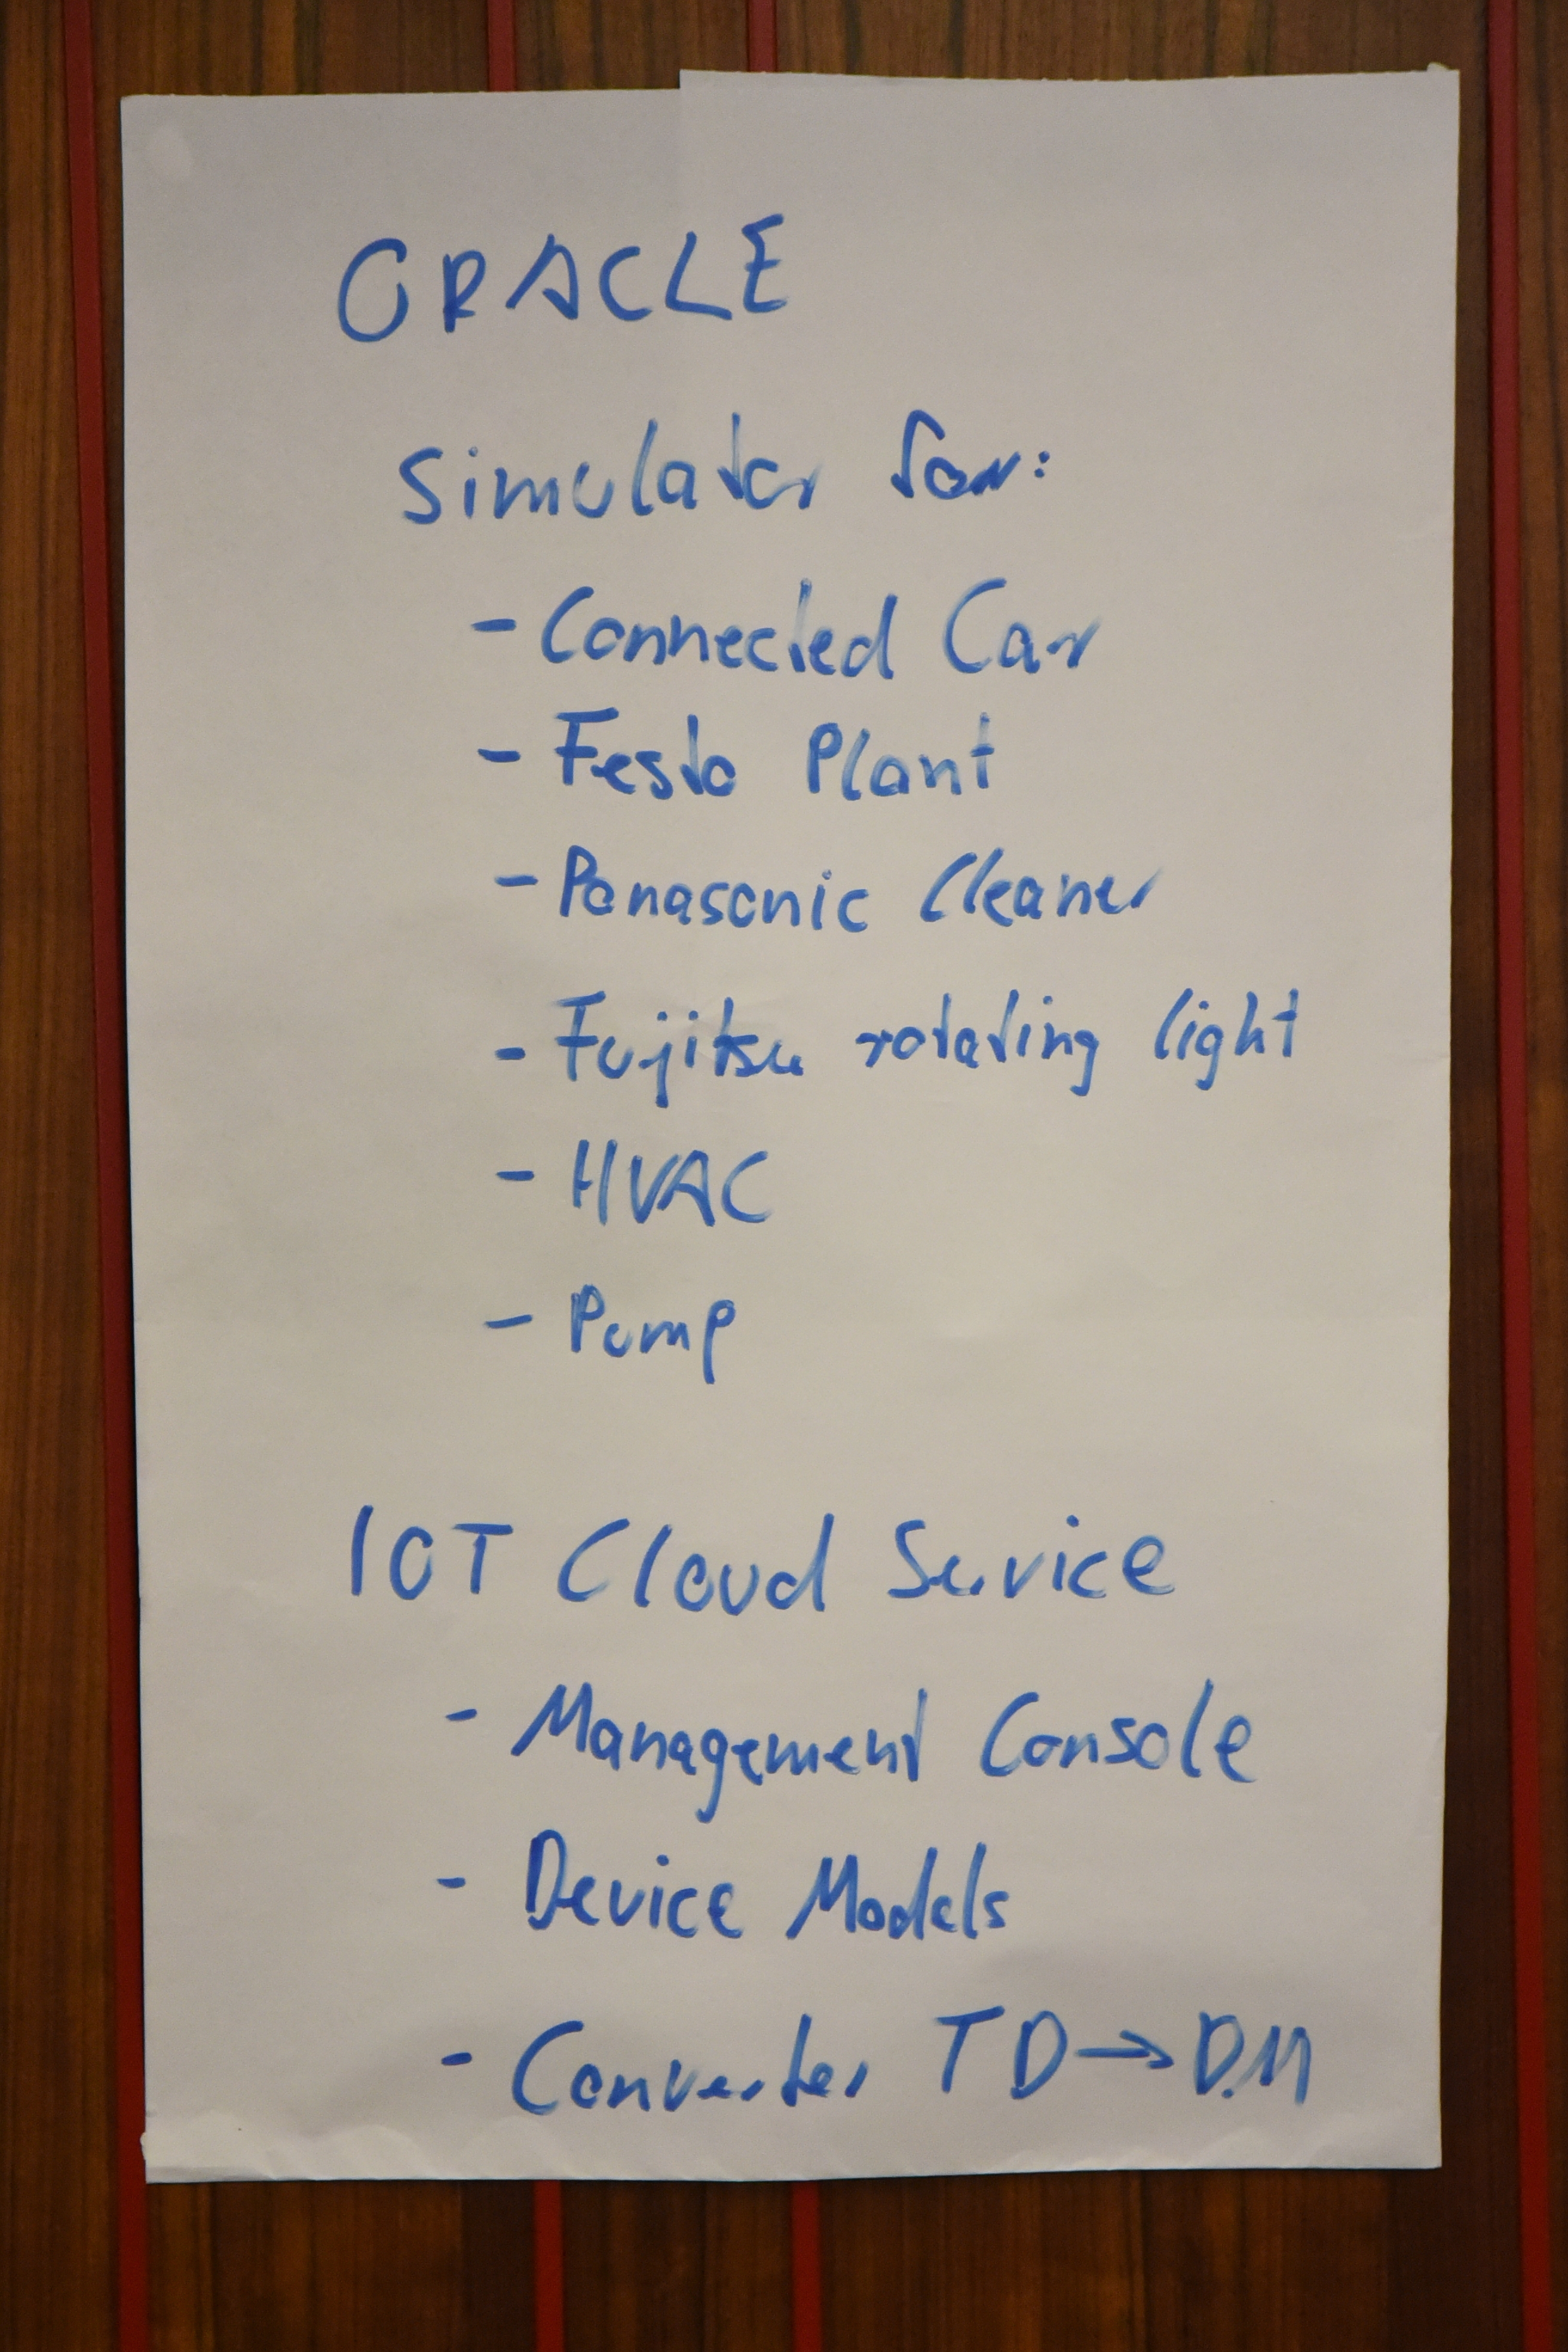 ORACLE
Simulator for:
- Connected Car
- Festo Plant
- Panasonic Cleaner
- Fujitsu rotating light
- HVAC
- Pump
IOT Cloud Service
- Management Console
- Device Models
- Converter TD → DM